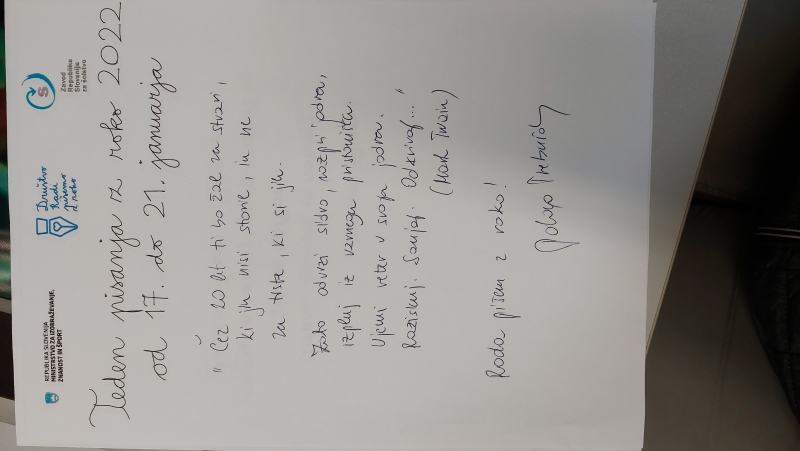 REPUBLIKA SLOVENIJA
MINISTRSTVO ZA IZOBRAŽEVANJE,
ZNANOST IN ŠPORT
Društvo
Radi
pišemo
z roko
Zavod
Republike
Slovenije
za šolstvo
Teden pisanja z roko 2022
od 17. do 21. januarja
"Čez 20 let ti bo žal za stvari,
ki jih nisi storil, in ne
za tiste, ki si jih.
Zato odvrzi sidro, razpri jadra,
izpluj iz varnega pristanišča.
Ujemi veter v svoja jadra.
Raziskuj. Sanjaj. Odkrivaj..."
(Mark Twain)
Rada pišem z roko!